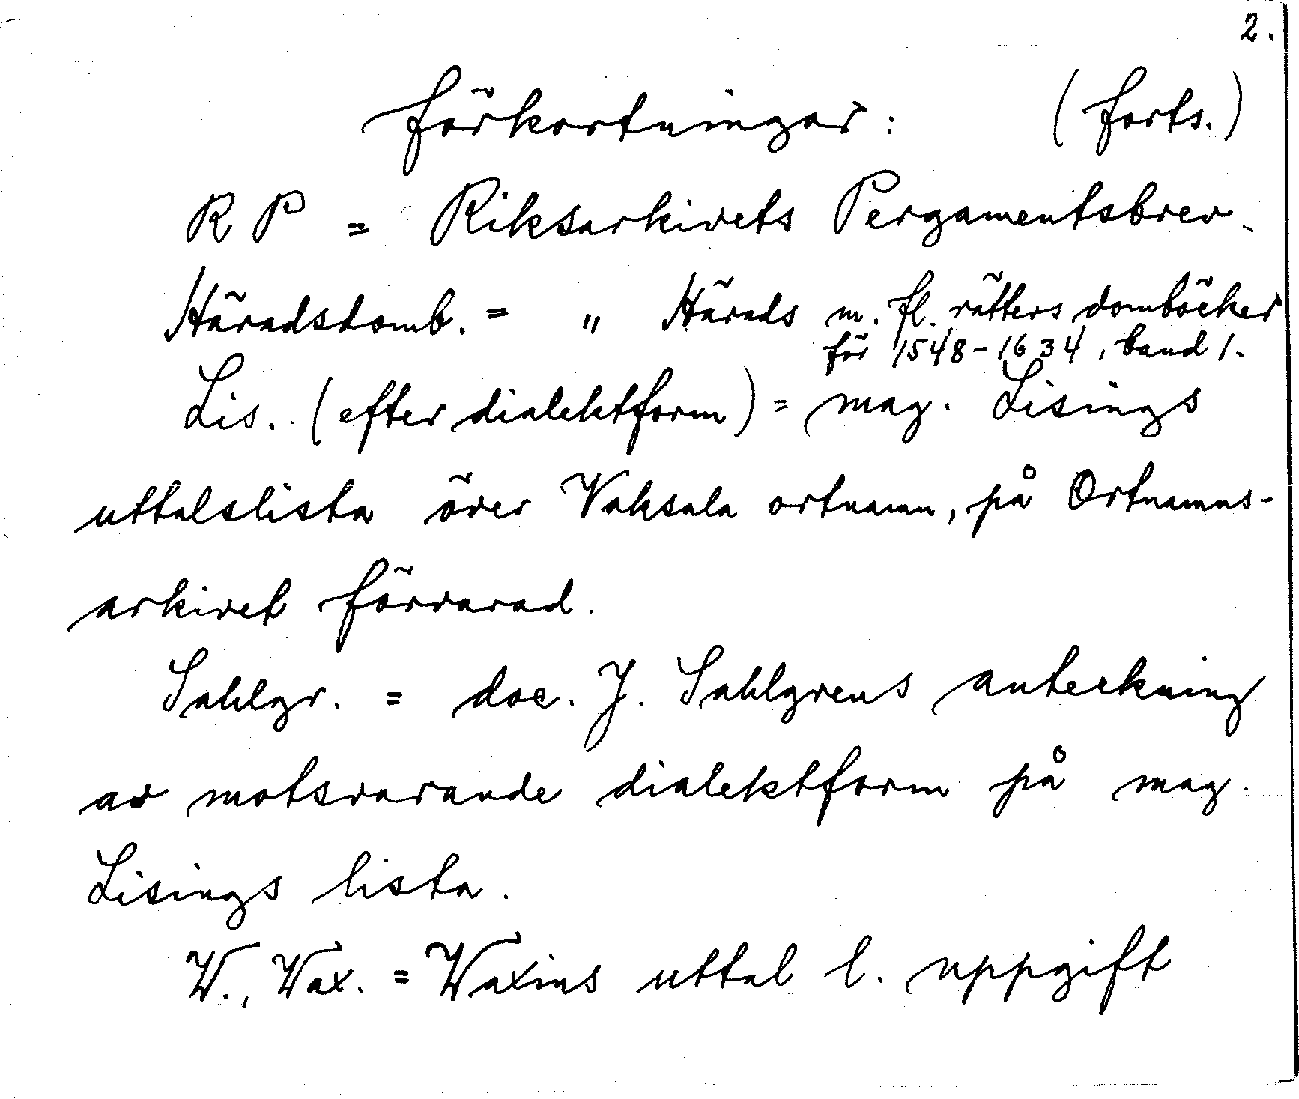 2.
Förkortningar: (forts.)
RP = Riksarkivets Pergamentsbrev.
Häradsdomb. = " Härads m. fl. rätters domböcker
för 1548-1634, band 1.
Lis. (efter dialektform) = mag. Lisings
uttalslista över Vaksala ortnamn, på Ortnamns-
arkivet förvarad.
Sahlgr. = doc. J. Sahlgrens anteckning
av motsvarande dialektform på mag.
Lisings lista.
W., Wax. = Waxins uttal l. uppgift